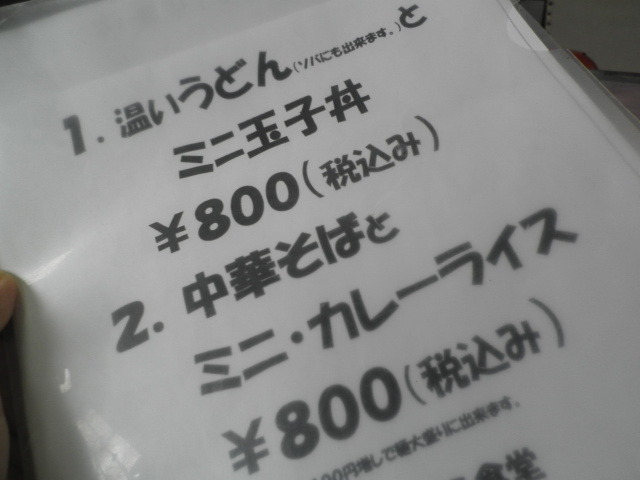 1. 温いうどん(ソバにも出来ます。)と
ミニ玉子丼
¥800(税込み)
2. 中華そばと
ミニ・カレーライス
¥800(税込み)
00円増しで麺大盛りに出来ます。
食堂